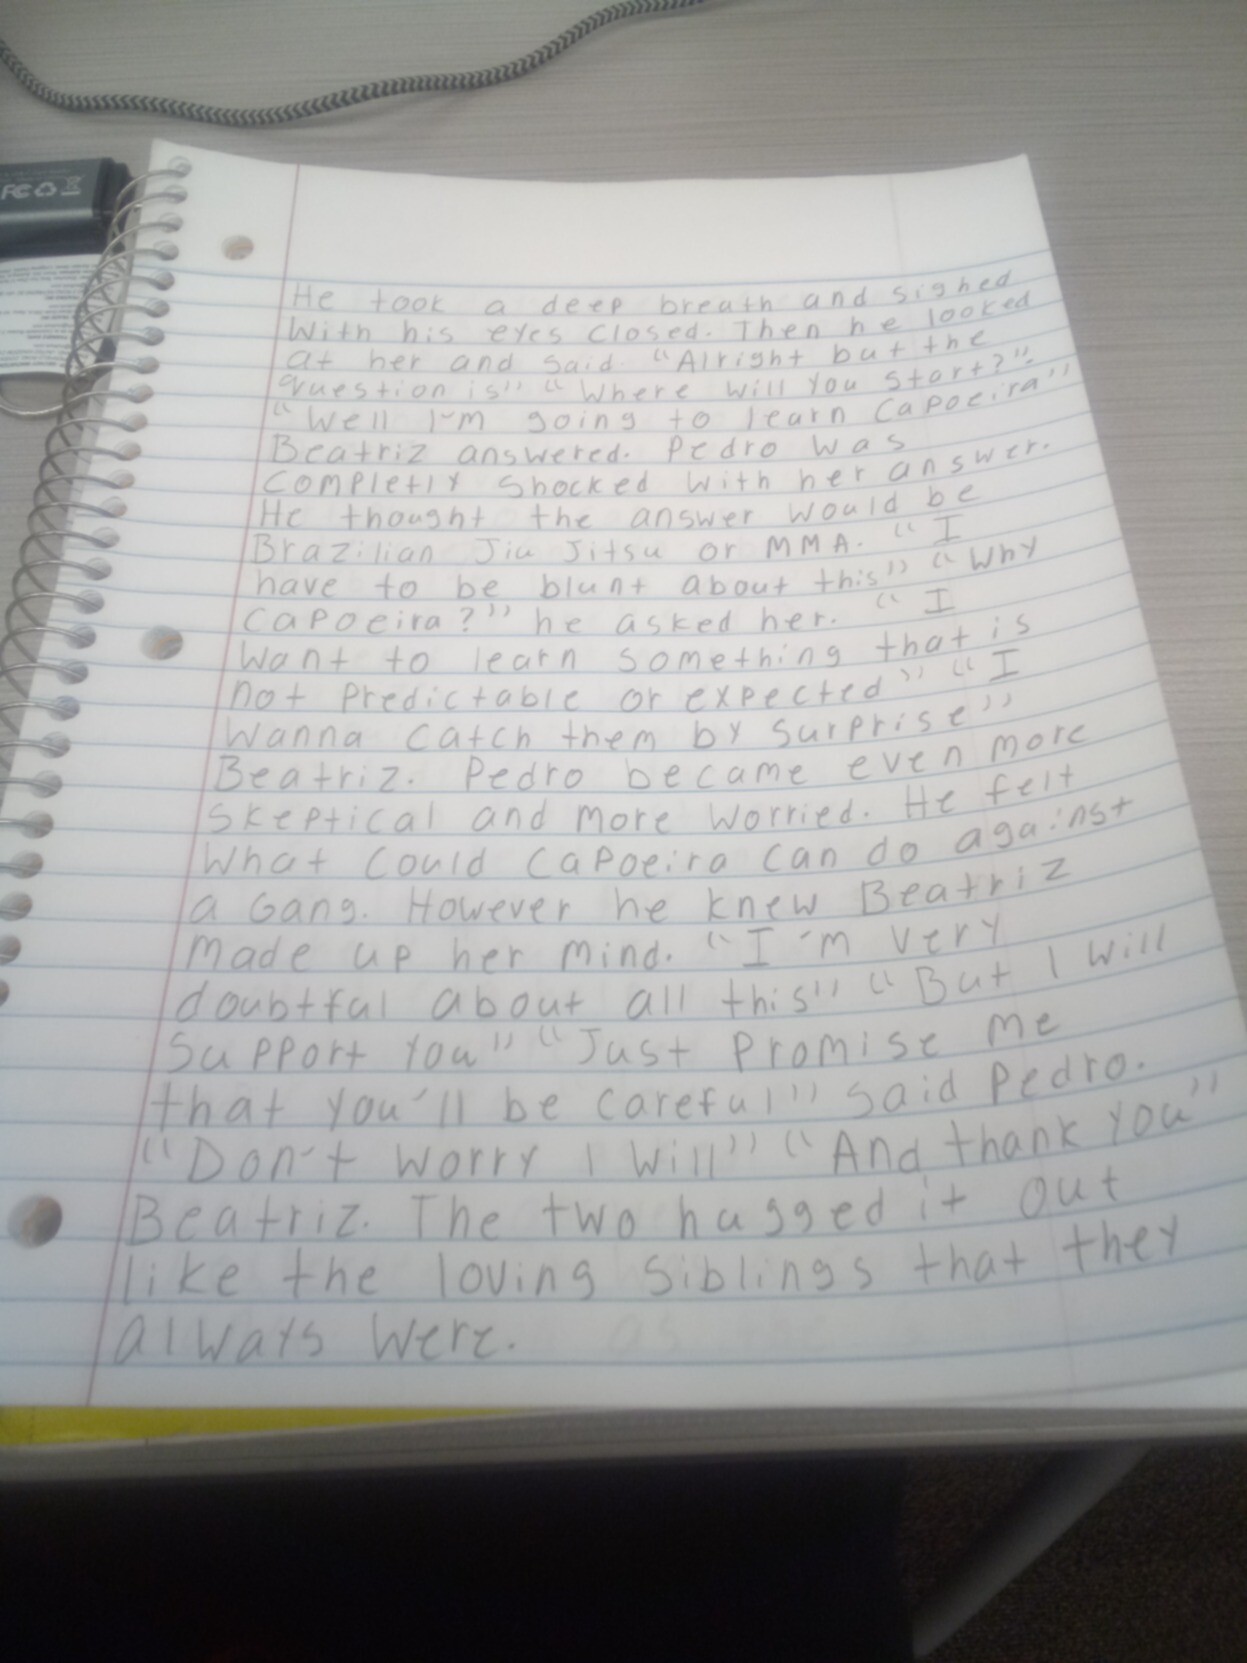 FC
He took a deep breath and sighed
With his eyes closed. Then he looked
at her and said "Alright but the
question is" "Where will you start?".
"Well I'm going to learn Capoeira"
Beatriz answered. Pedro was
completly shocked with her answer.
He thought the answer would be
Brazilian Jiu Jitsu or MMA. "I
have to be blunt about this" "Why
Capoeira?" he asked her. "I
want to learn something that is
not predictable or expected" "I
Wanna catch them by surprise"
Beatriz. Pedro became even more
skeptical and more worried. He felt
what could Capoeira can do against
a Gang. However he knew Beatriz
made up her mind. "I'm very
doubtful about all this" "But I will
support you" "Just promise me
that you'll be careful" said Pedro.
"Don't worry I will" "And thank you"
Beatriz. The two hugged it out
like the loving siblings that they
always were.